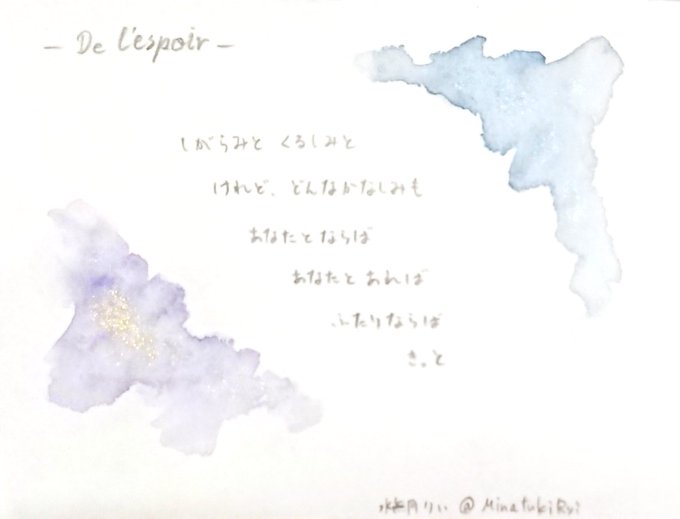 - De L'espoir -
しがらみと くるしみと
けれど、どんなかなしみも
あなたとならば
あなたと あれば
ふたりならば
きっと
水無月りい @MinatukiRyi